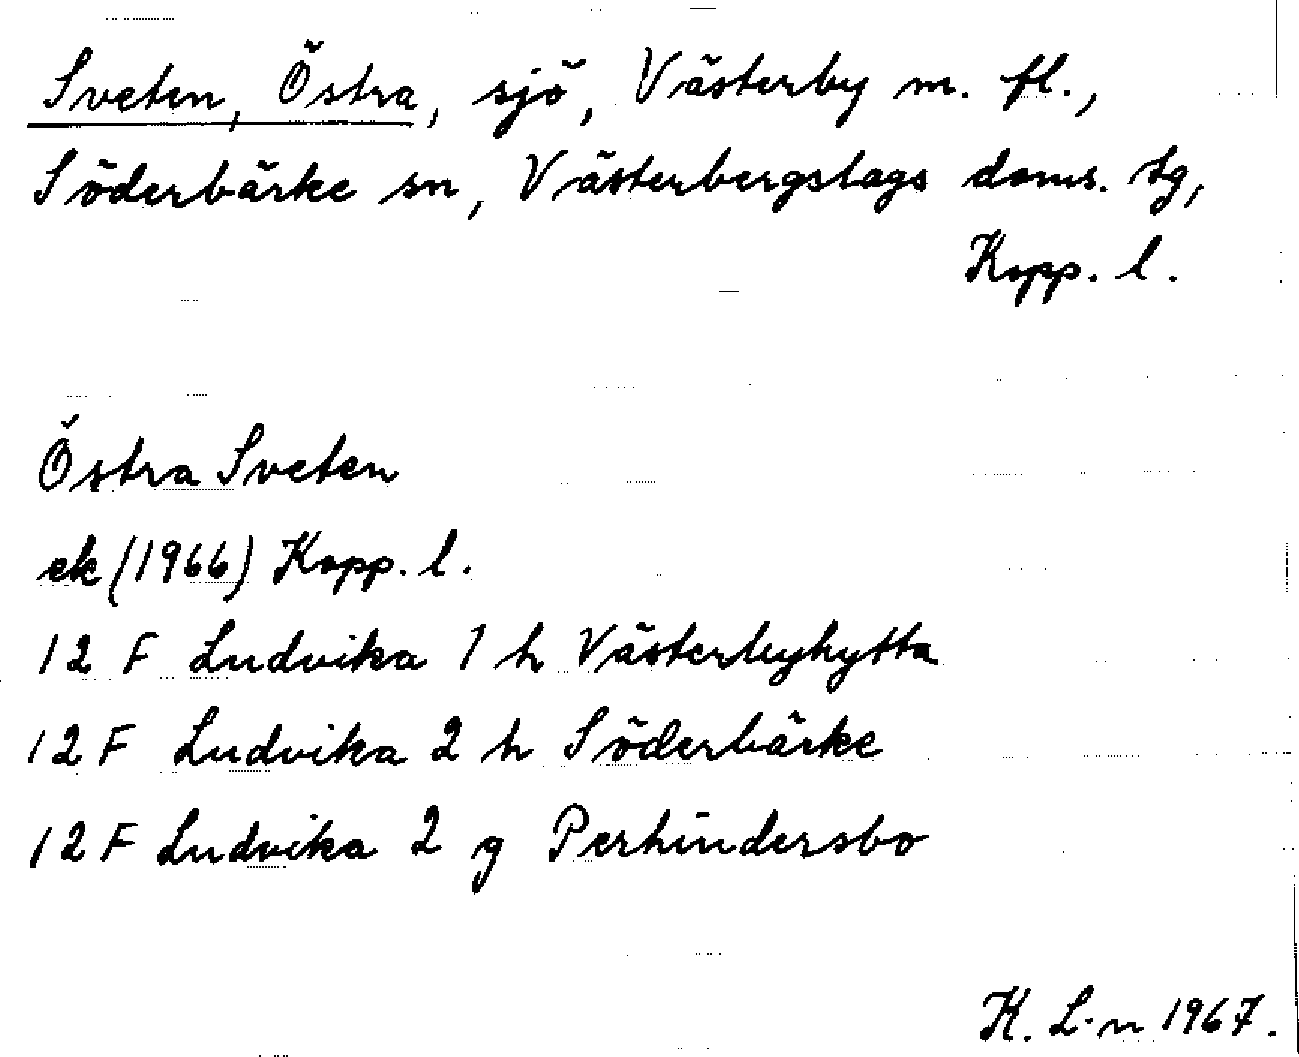 Sveten, Östra, sjö, Västerby m. fl.,
Söderbärke sn, Västerbergslags doms. tg,
Kopp. l.
Östra Sveten
ek (1966) Kopp. l.
12 F Ludvika 1 h Västerbyhytta
12 F Ludvika 2 h Söderbärke
12 F Ludvika 2 g Perhindersbo
K. L-n 1967.